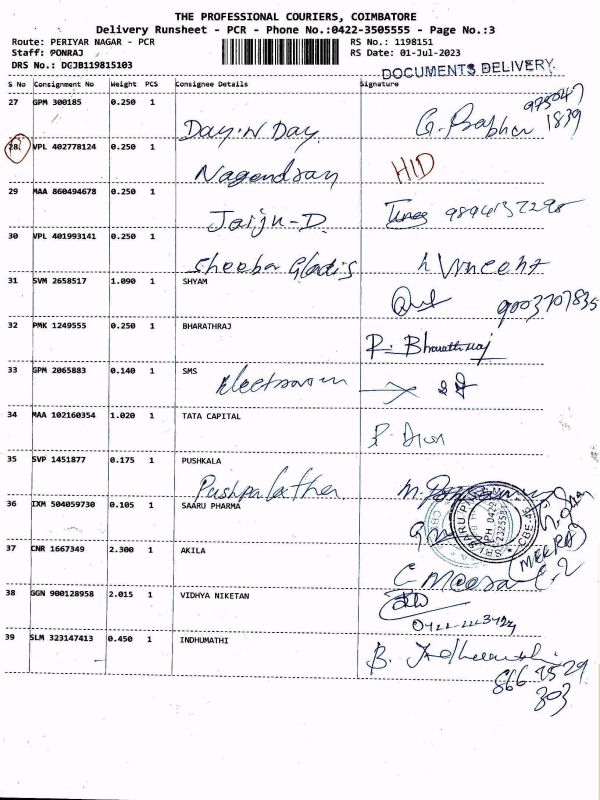 THE PROFESSIONAL COURIERS, COIMBATORE
Delivery Runsheet - PCR - Phone No.:0422-3505555 - Page No.:3
Route: PERIYAR NAGAR - PCR RS No.: 1198151
Staff: PONRAJ RS Date: 01-Jul-2023
DRS No.: DCJB119815103
DOCUMENTS DELIVERY.
S No Consignment No Weight PCS Consignee Details Signature
27 GPM 300185 0.250 1
Day.N Day. G. Prabhu
1839
28. VPL 402778124 0.250 1
Nagendran HID
29 MAA 860494678 0.250 1
Jaiju-D.
30 VPL 401993141 0.250 1
Sheeba Gladis Vincent
31 SVM 2658517 1.090 1 SHYAM
9003707835
32 PMK 1249555 0.250 1 BHARATHRAJ
R. Bharathraj
33 GPM 2065883 0.140 1 SMS
34 MAA 102160354 1.020 1 TATA CAPITAL
35 SVP 1451877 0.175 1 PUSHKALA
Pushpalatha
36 IXM 504059730 0.105 1 SAARU PHARMA
37 CNR 1667349 2.300 1 AKILA
(MEERA)
C Meera
38 GGN 900128958 2.015 1 VIDHYA NIKETAN
39 SLM 323147413 0.450 1 INDHUMATHI
B. Indhumathi